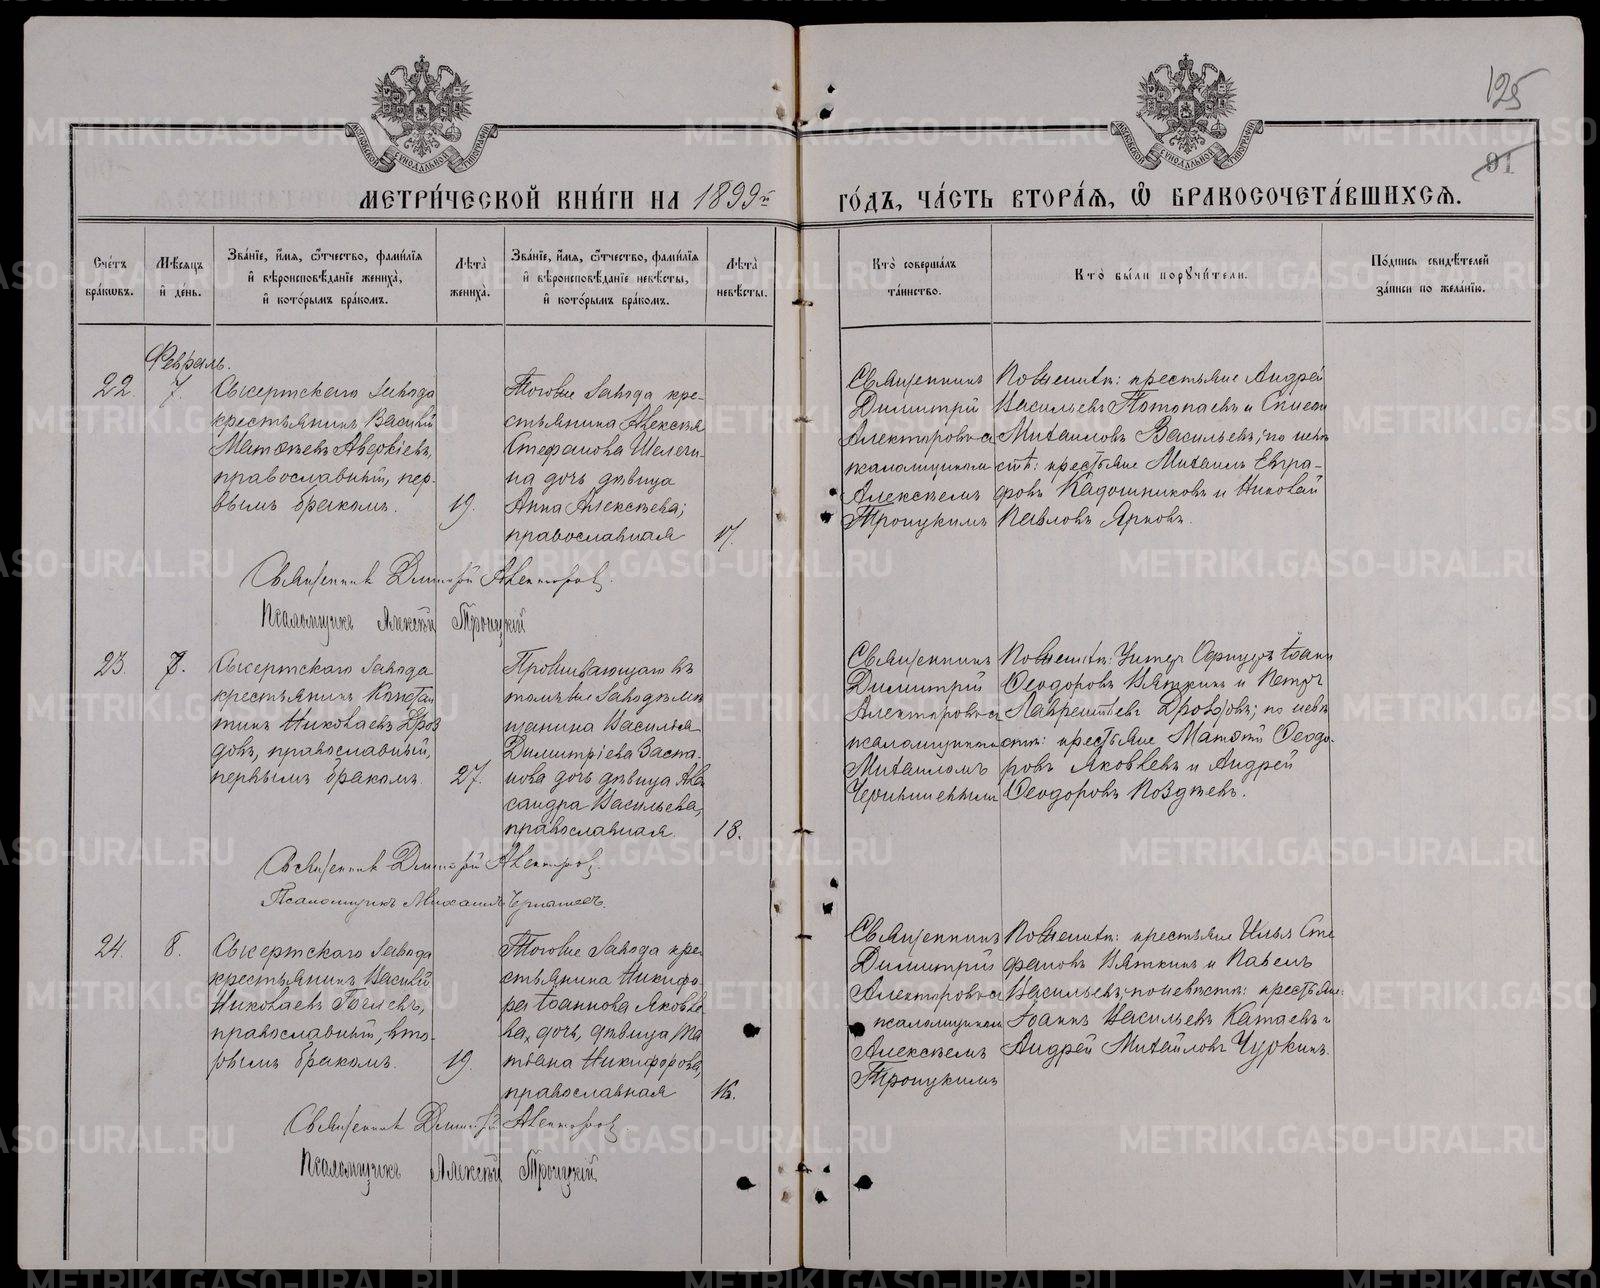 125
91
МЕТРИ́ЧЕСКОЙ КНИ́ГИ НА 1899й ГО́ДЪ, ЧА́СТЬ ВТОРА́Я, Ѿ БРАКОСОЧЕТА́ВШИХСЯ.
Сче́тъ бра́кѡвъ.
Мѣ́сяцъ и҆ де́нь.
Зва́нїе, и҆́мя, ѻ҆́тчество, фами́лїя
и҆ вѣроисповѣ́данїе жениха̀,
и҆ кото́рымъ бра́комъ.
Лѣ́та жениха̀.
Зва́нїе, и҆́мя, ѻ҆́тчество, фами́лїя
и҆ вѣроисповѣ́данїе невѣ́сты,
и҆ кото́рымъ бра́комъ.
Лѣ́та невѣ́сты.
Кто̀ соверша́лъ
та́инство.
Кто̀ бы́ли порꙋчи́тели.
По́дпись свидѣ́телей
за́писи по жела́нїю.
Февраль.
22. 7.
Сысертскаго Завода
крестьянинъ Василій
Матѳѣевъ Аверкіевъ,
православный, пер-
вымъ бракомъ. 19.
Тогоже Завода кре-
стьянина Алексѣя
Стефанова Шелеги-
на дочь дѣвица
Анна Алексѣева;
православная 17.
Священникъ
Димитрій
Алекторовъ съ
псаломщикомъ
Алексѣемъ
Троицкимъ
По жениху: крестьяне Андрей
Васильевъ Потопаевъ и
Михаиловъ Васильевъ; по невѣ
стѣ: крестьяне Михаилъ Евгра-
фовъ Кадошниковъ и Николай
Павловъ Ярковъ.
Священникъ Димитрій Алекторовъ.
Псаломщикъ Алексѣй Троицкій
23. 7.
Сысертскаго Завода
крестьянинъ Констан
тинъ Николаевъ Дроз
довъ, православный,
первымъ бракомъ. 27.
Проживающаго въ
томъ же Заводѣ мѣ
щанина Василія
Димитріева Заста-
нова дочь дѣвица Алек
сандра Васильева,
православная. 18.
Священникъ
Димитрій
Алекторовъ съ
псаломщикомъ
Михаиломъ
Чернышевымъ
По жениху: Унтеръ Офицеръ Іоаннъ
Ѳеодоровъ Вяткинъ и Петръ
Лаврентіевъ Дроздовъ; по невѣ
стѣ: крестьяне Матѳій Ѳеодо-
ровъ Яковлевъ и Андрей
Ѳеодоровъ Поздѣевъ.
Священникъ Димитрій Алекторовъ.
Псаломщикъ Михаилъ Чернышевъ.
24. 8.
Сысертскаго Завода
крестьянинъ Василій
Николаевъ
православный, вто-
рымъ бракомъ. 19.
Тогоже Завода кре-
стьянина Никифо-
ра Іоаннова Яковле
ва, дочь, дѣвица Та
тіана Никифорова,
православная 16.
Священникъ
Димитрій
Алекторовъ съ
псаломщикомъ
Алексѣемъ
Троицкимъ
По жениху: крестьяне Илья Сте
фановъ Вяткинъ и Павелъ
Васильевъ; по невѣстѣ: крестьяне:
Іоаннъ Васильевъ Катаевъ и
Андрей Михаиловъ Чуркинъ.
Священникъ Димитрій Алекторовъ.
Псаломщикъ Алексѣй Троицкій
METRIKI.GASO-URAL.RU